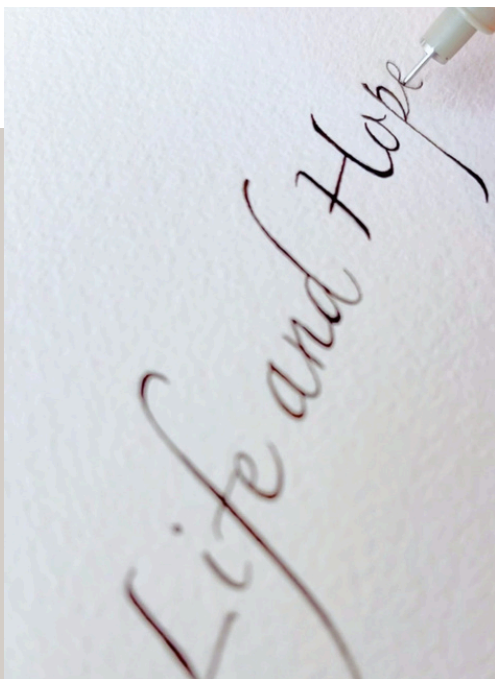 Life and Hope